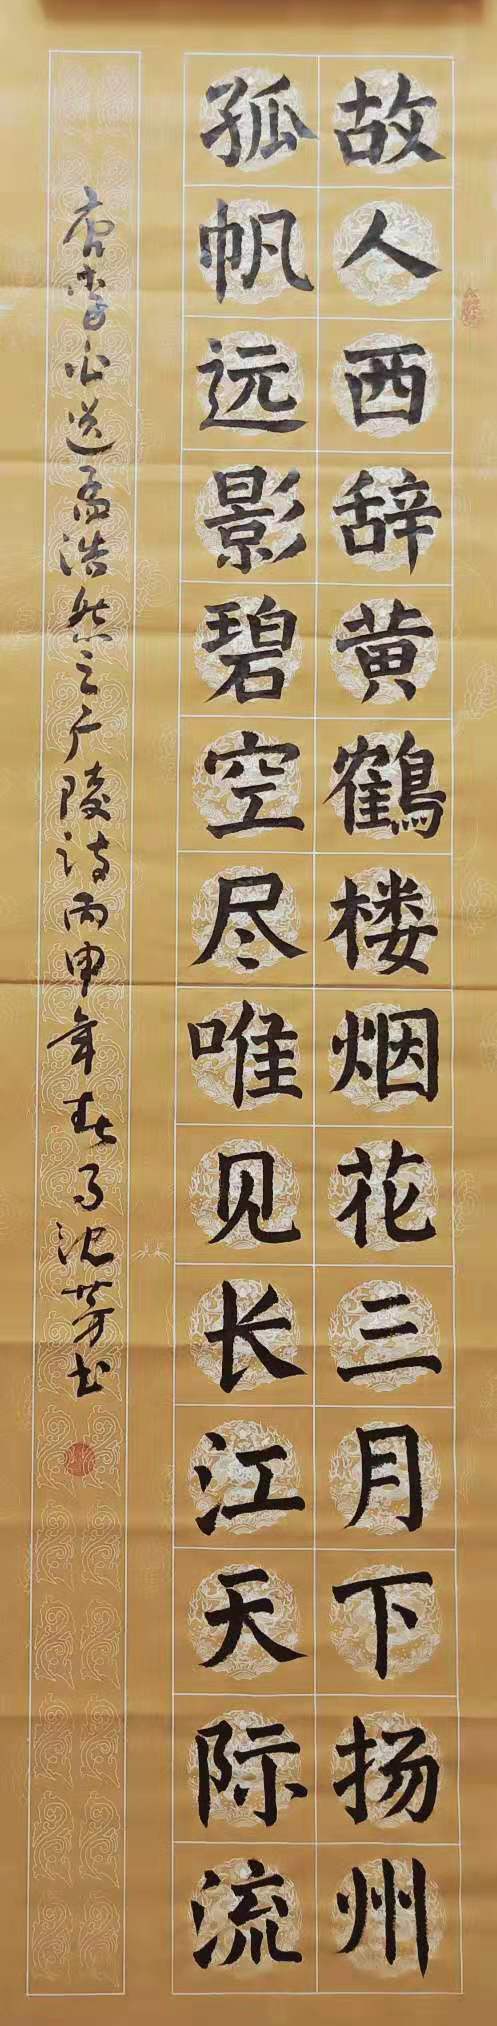 故人西辞黄鹤楼烟花三月下扬州
孤帆远影碧空尽唯见长江天际流
唐李白送孟浩然之广陵诗丙申年春月沈芳书